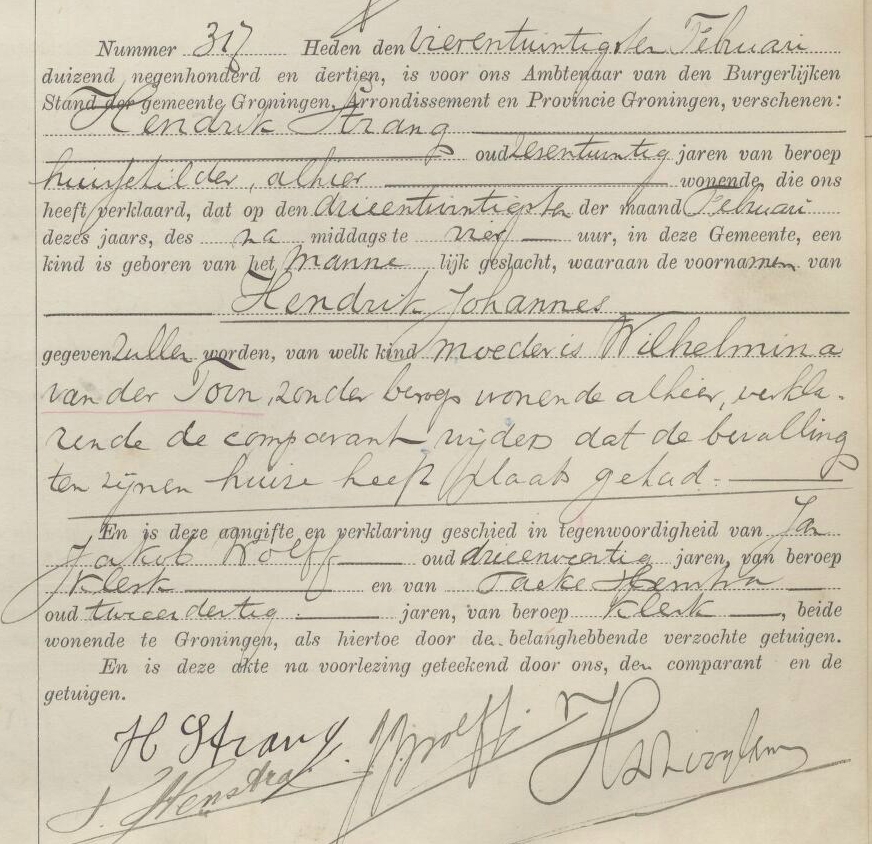 Nummer 317 Heden den vierentwintigsten Februari
duizend negenhonderd en dertien, is voor ons Ambtenaar van den Burgerlijken
Stand der gemeente Groningen, Arrondissement en Provincie Groningen, verschenen:
Hendrik Strang
oud zesentwintig jaren van beroep
huisschilder, alhier wonende, die ons
heeft verklaard, dat op den drieentwintigsten der maand Februari
dezes jaars, des na middags te vier uur, in deze Gemeente, een
kind is geboren van het manne lijk geslacht, waaraan de voornamen van
Hendrik Johannes
gegeven zullen worden, van welk kind moeder is Wilhelmina
van der Torn, zonder beroep wonende alhier, verkla-
rende de comparant wijders dat de bevalling
ten zijnen huize heeft plaats gehad.
En is deze aangifte en verklaring geschied in tegenwoordigheid van Jan
Jakob Wolff oud drieenveertig jaren, van beroep
klerk en van Taeke Heinstra
oud tweeendertig jaren, van beroep klerk, beide
wonende te Groningen, als hiertoe door de belanghebbende verzochte getuigen.
En is deze akte na voorlezing geteekend door ons, den comparant en de
getuigen.
H Strang. JJWolff
T. Heinstra.